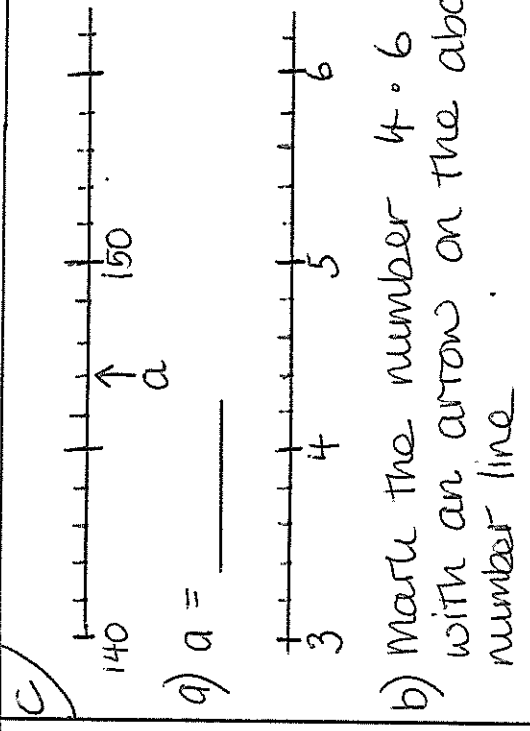 C
140 150
a
a) a =
3 4 5 6
b) Mark the number 4.6
with an arrow on the
number line.